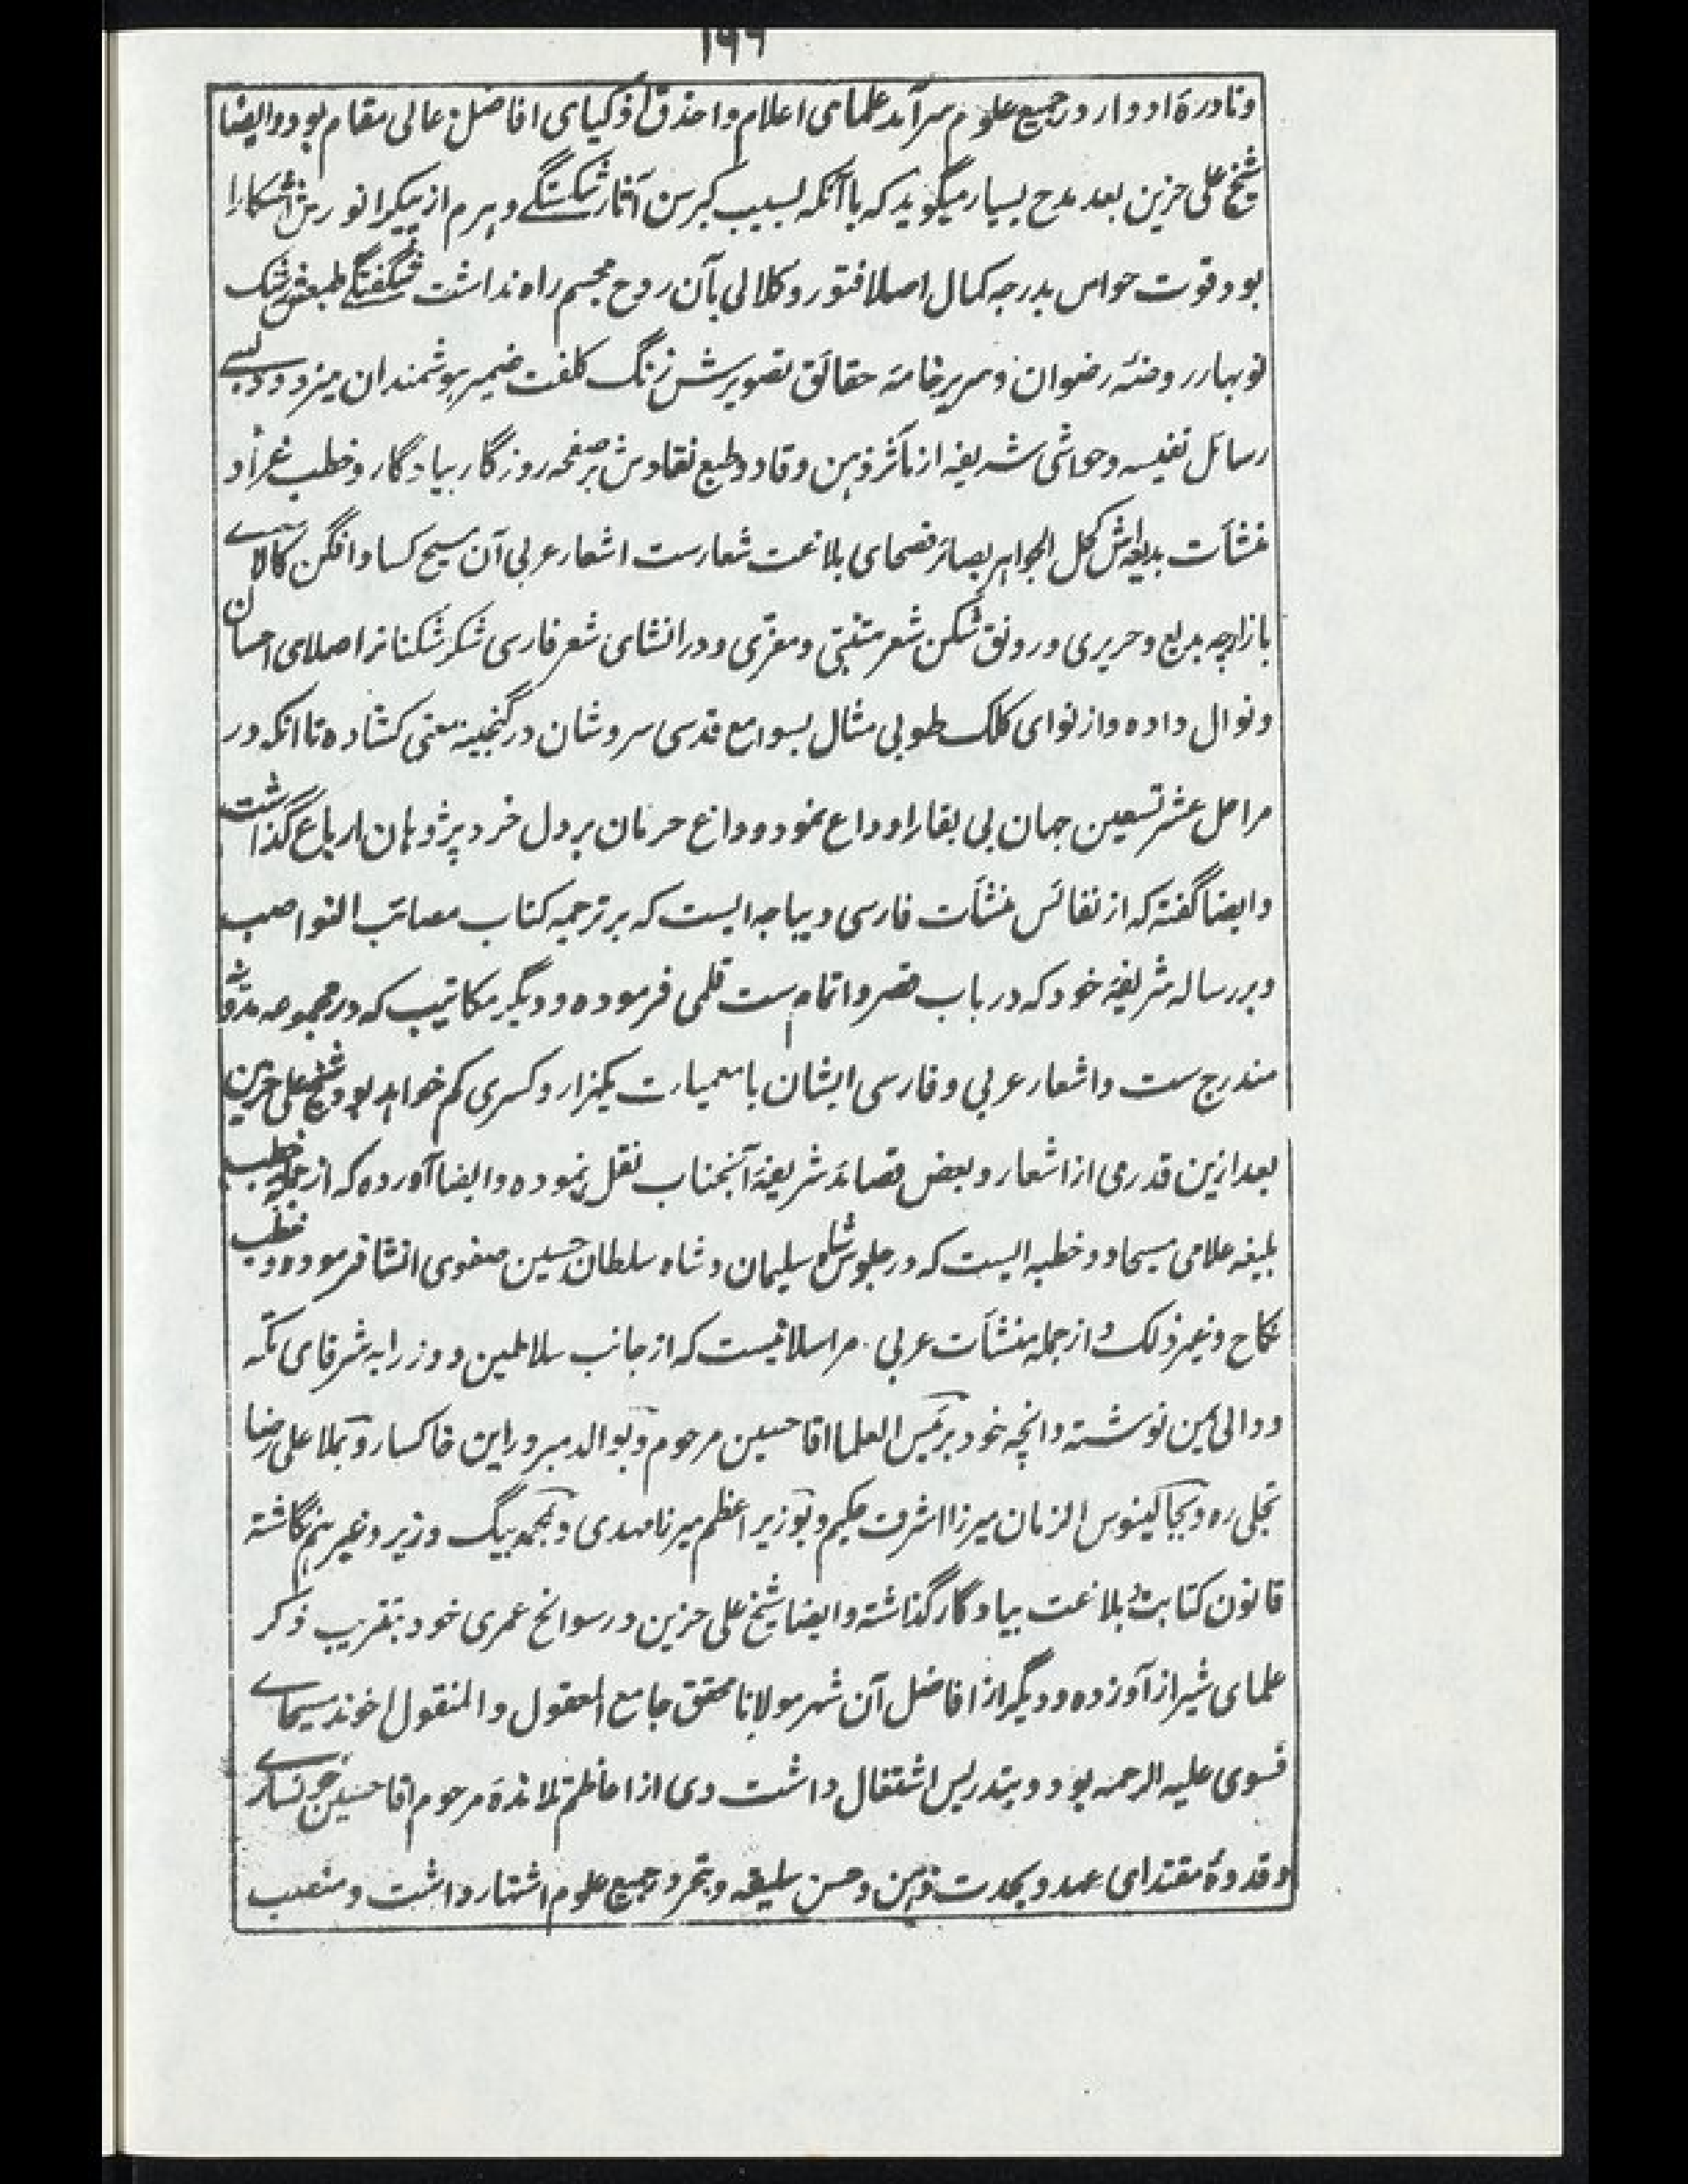 ۱۹۶
ونادرهٔ ادوار در جمیع علوم سرآمد علمای اعلام واحذق اذکیای افاضل عالی مقام بود وایضا
شیخ علی حزین بعد مدح بسیار میگوید که با آنکه بسبب کبر سن آثار شکستگے وہرم از پیکر انورش آشکارا
بود وقوت حواس بدرجه کمال اصلا فتور وکلالی بآن روح مجسم راه نداشت شگفتگے طبعش رشک
نوبهار روضهٔ رضوان وصریر خامهٔ حقائق تصویرش زنگ کلفت ضمیر ہوشمندان میزدود بسے
رسائل نفیسه وحواشی شریفه از مآثر ذہن وقاد وطبع نقادش بر صفحه روزگار بیادگار وخطب غرا و
منشآت بدیعه‌اش کحل الجواہر بصائر فصحای بلاغت شعارست اشعار عربی آن مسیح کساد افگن کالاے
بازارچه بدیع وحریری ورونق شکن شعر متنبّی ومعرّی ودر انشای شعر فارسی شکر شکنانرا صلای احسان
ونوال داده واز نوای کلک طوبی مثال بسوامع قدسی سروشان در گنجینه معنی کشاده تا آنکه در
مراحل عشر تسعین جهان بی بقا را وداع نمود وداغ حرمان بر دل خرد پژوہان ارباع گذاشت
وایضا گفته که از نفائس منشآت فارسی دیباجه ایست که بر ترجمهٔ کتاب مصائب النواصب
وبر رساله شریفهٔ خود که در باب قصر واتمام ست قلمی فرموده ودیگر مکاتیب که در مجموعه مدوّنه
مندرج ست واشعار عربی وفارسی ایشان با معمیات یکہزار وکسری کم خواہد بود وشیخ علی حزین
بعد ازین قدری از اشعار وبعض قصائد شریفهٔ آنجناب نقل نموده وایضا آورده که از جمله خطب
بلیغه علامی مسیحا دو خطبه ایست که در جلوس شاه سلیمان وشاه سلطان حسین صفوی انشا فرموده وخطب
نکاح وغیر ذلک واز جمله منشآت عربی مراسلاتیست که از جانب سلاطین ووزرا به شرفای مکّه
ووالی یمن نوشته وآنچه خود برئیس العلما آقا حسین مرحوم وبوالد مبرور این خاکسار وبملا علی رضا
تجلی ره وبجالینوس الزمان میرزا اشرف حکیم وبوزیر اعظم میرزا مهدی وبمحمد بیگ وزیر وغیرہم نگاشته
قانون کتابت بلاغت بیادگار گذاشته وایضا شیخ علی حزین در سوانح عمری خود بتقریب ذکر
علمای شیراز آورده ودیگر از افاضل آن شهر مولانا محقق جامع المعقول والمنقول اخوند مسیحاے
فسوی علیه الرحمه بود وبتدریس اشتغال داشت وی از اعاظم تلامذهٔ مرحوم آقا حسین خوانساری
وقدوهٔ مقتدای عهد وبحدت ذہن وحسن سلیقه وتبحر در جمیع علوم اشتهار داشت ومنصب